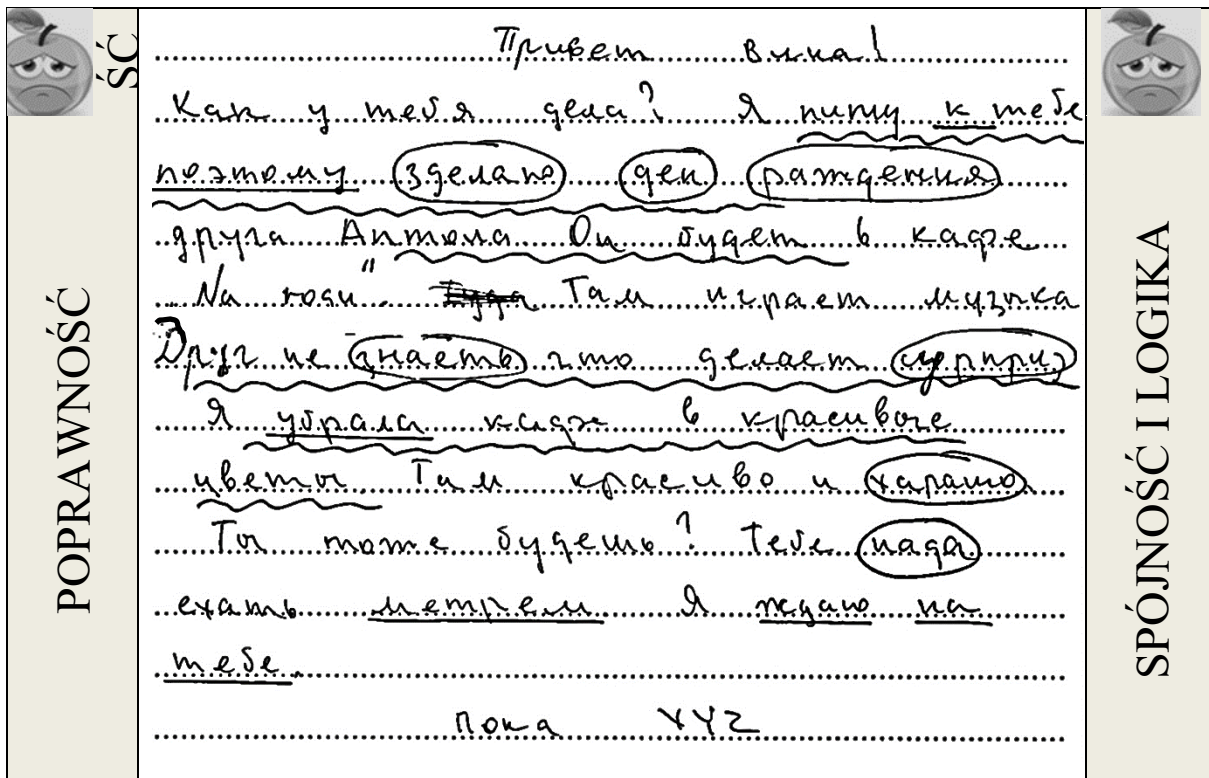 ŚĆ
POPRAWNOŚĆ
Привет вика!
Как у тебя дела? Я пишу к тебе
поэтому зделаю ден раждения
друга Антола Он будет в кафе
"Na rogu". Там играет музыка
Друг не знаеть что делает сурприз
Я убрала кафе в красивые
цветы Там красиво и харашо
Ты тоже будешь? Тебе нада
ехать метрем Я ждаю на
тебе.
пока XYZ
SPÓJNOŚĆ I LOGIKA